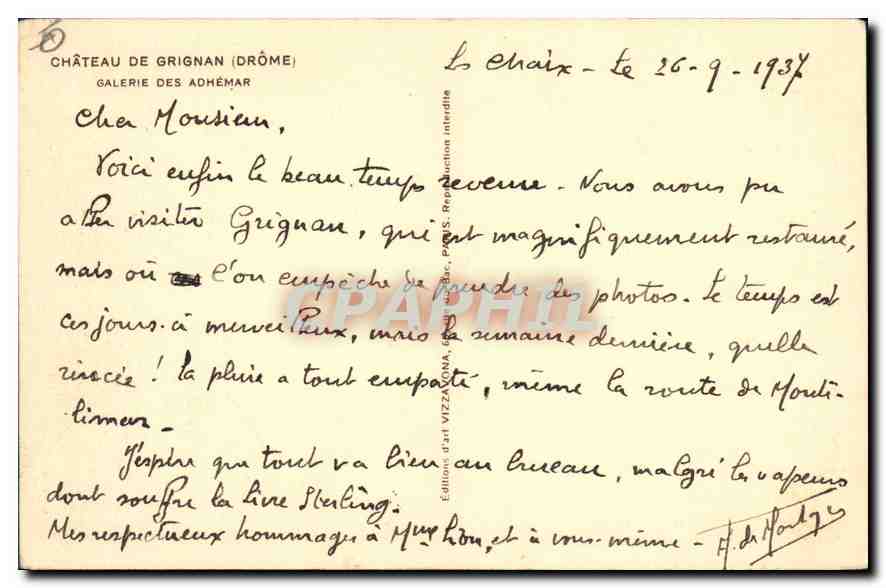 CHÂTEAU DE GRIGNAN (DRÔME)
GALERIE DES ADHÉMAR
Le Chaix - Le 26-9-1937
Cher Monsieur,
Voici enfin le beau temps revenu - Nous avons pu
aller visiter Grignan, qui est magnifiquement restauré,
mais où l'on empêche de prendre des photos. Le temps est
ces jours-ci merveilleux, mais la semaine dernière, quelle
rincée ! la pluie a tout emporté, même la route de Monté-
limar -
J'espère que tout va bien au bureau, malgré les vapeurs
dont souffre la livre Sterling.
Mes respectueux hommages à Mme Lion, et à vous-même -
Editions d'art VIZZAVONA, PARIS. Reproduction interdite
CPAPHIL